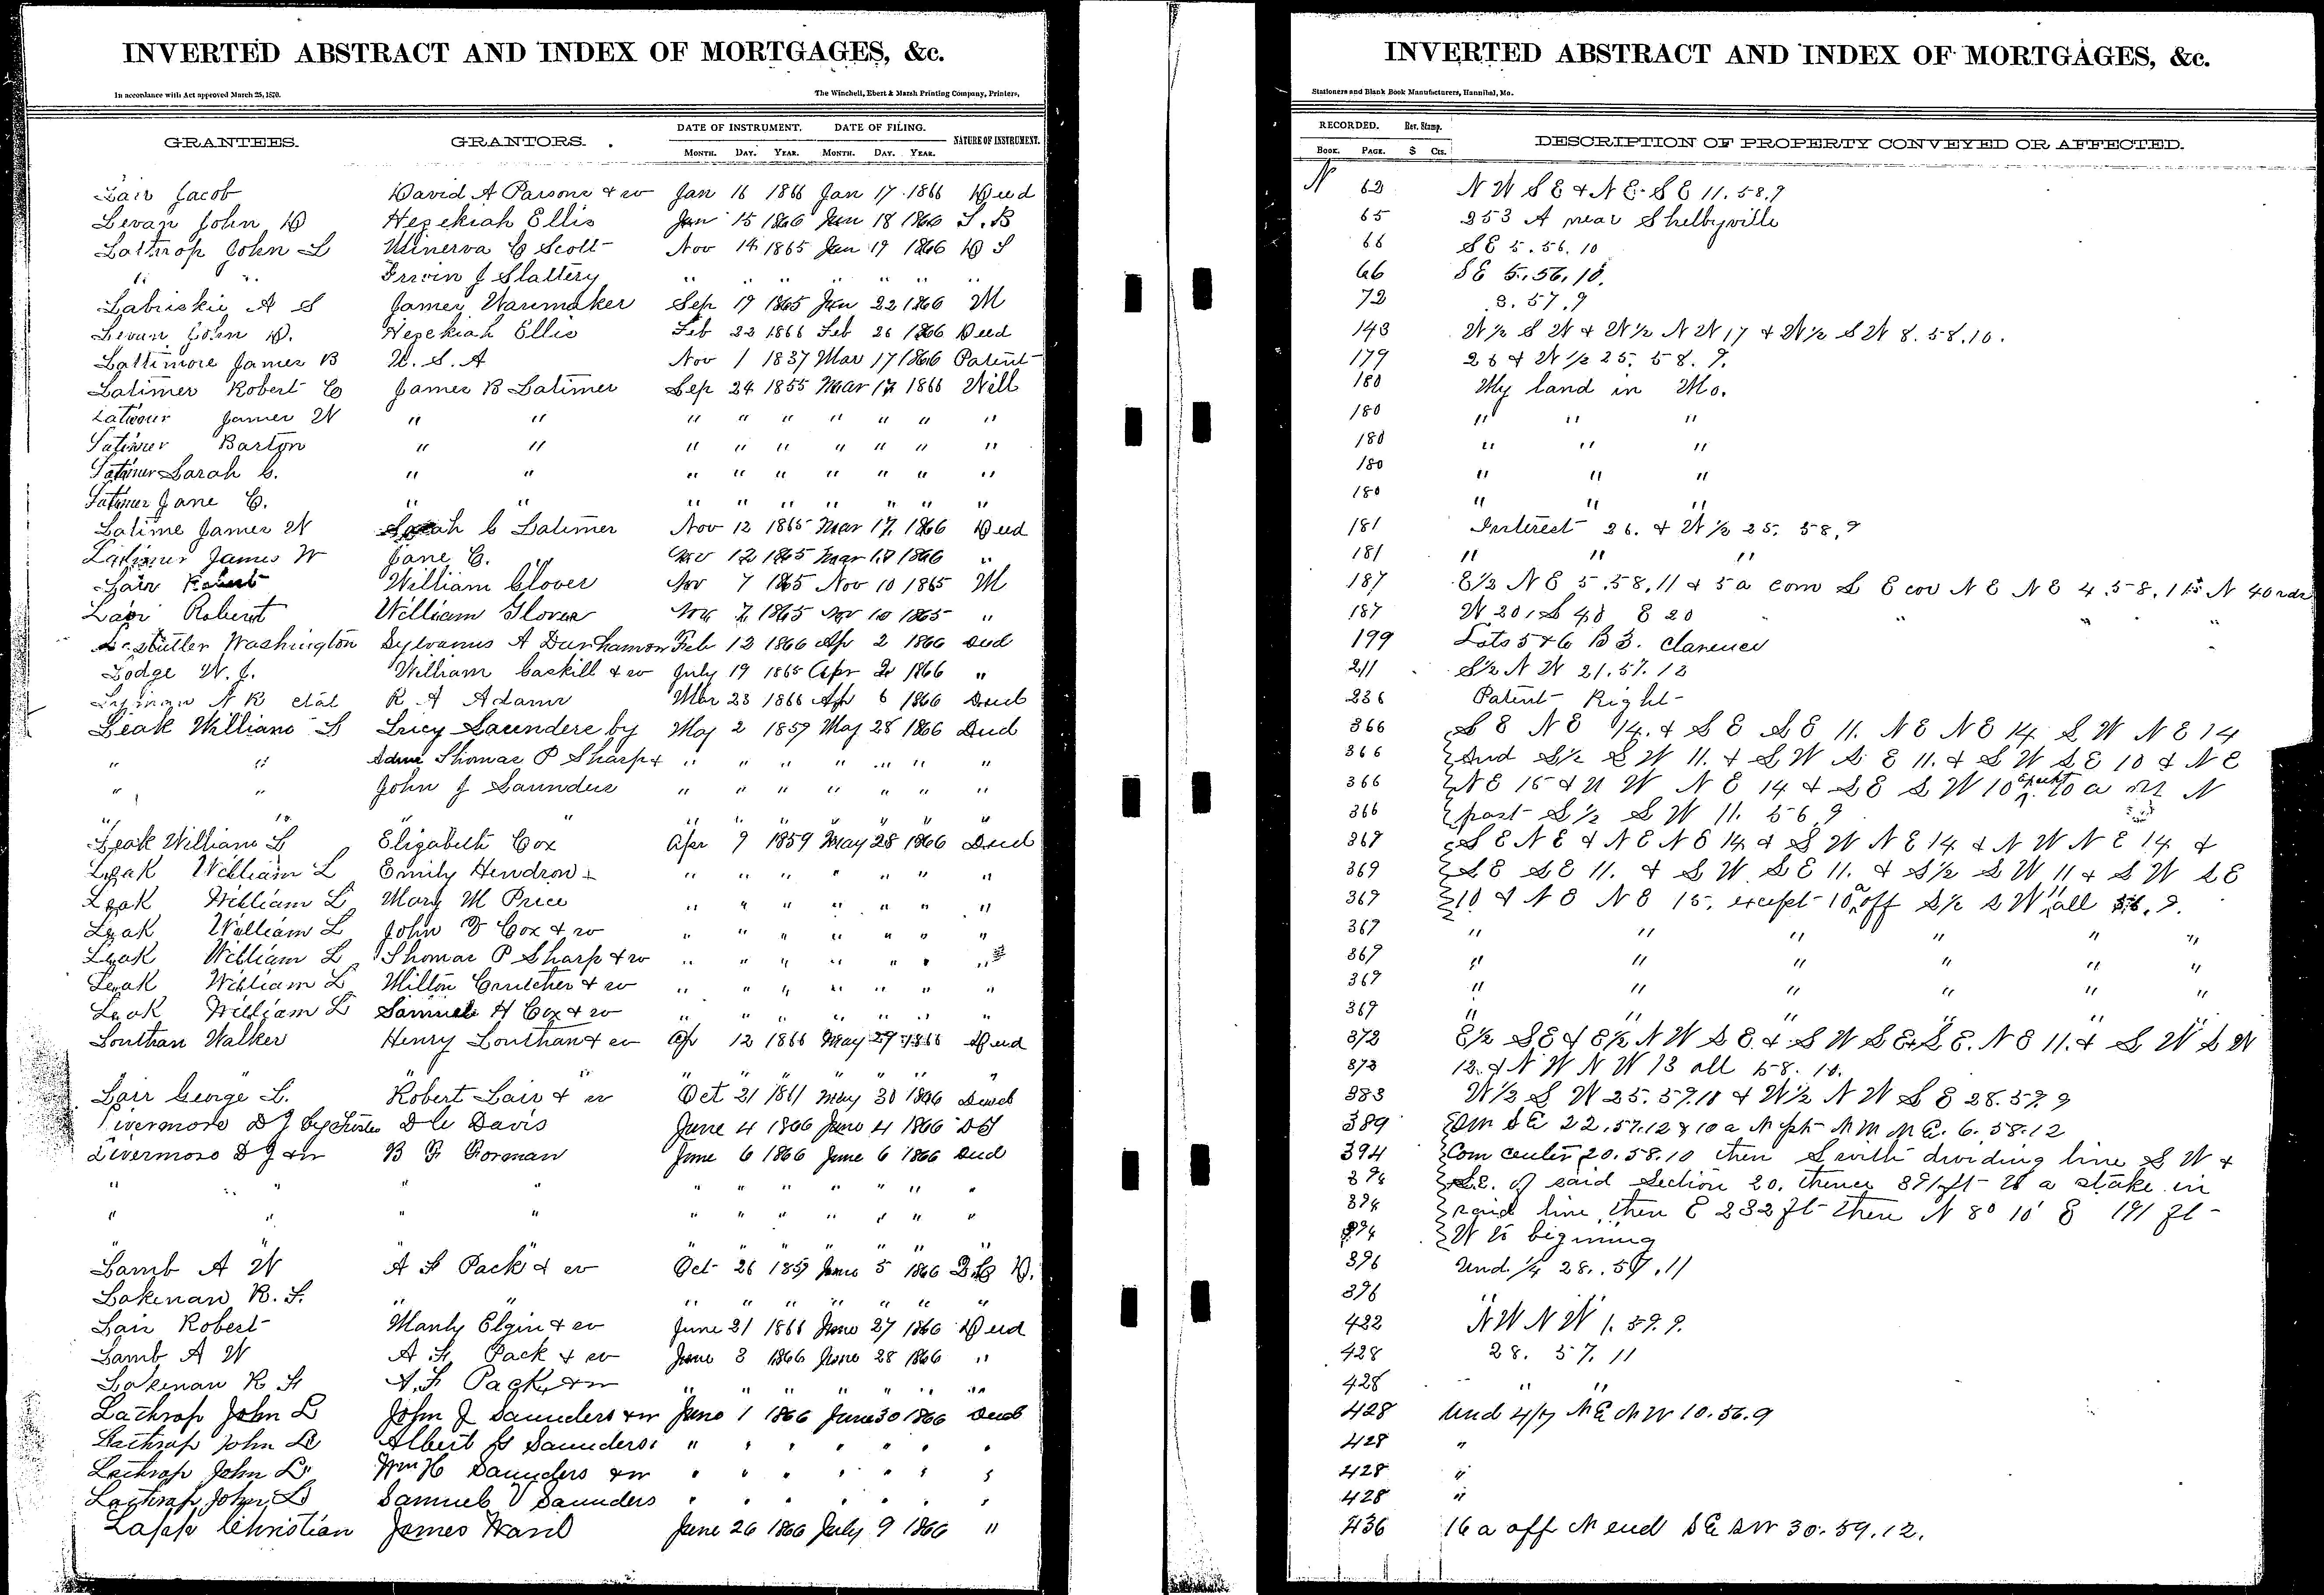 INVERTED ABSTRACT AND INDEX OF MORTGAGES, &c.
In accordance with Act approved March 25, 1870. The Winchell, Ebert & Marsh Printing Company, Printers,
GRANTEES. GRANTORS. DATE OF INSTRUMENT. DATE OF FILING. NATURE OF INSTRUMENT.
MONTH. DAY. YEAR. MONTH. DAY. YEAR.
Lair Jacob David A Parsons & w Jan 16 1866 Jan 17 1866 Deed
Levan John D Hezekiah Ellis Jan 15 1866 Jan 18 1866 T.B
Lathrop John L Minerva C Scott Nov 14 1865 Jan 19 1866 D T
" " Irwin J Slattery " " " " " " "
Labriskie A S James Wanmaker Sep 19 1865 Jan 22 1866 M
Levan John D. Hezekiah Ellis Feb 22 1866 Feb 26 1866 Deed
Lattimore James B U.S.A Nov 1 1837 Mar 17 1866 Patent
Latimer Robert C James B Latimer Sep 24 1855 Mar 17 1866 Will
Latimer James W " " " " " " " " "
Latimer Barton " " " " " " " " "
Latimer Sarah C. " " " " " " " " "
Latimer Jane C. " " " " " " " " "
Latime James W Sarah C Latimer Nov 12 1865 Mar 17 1866 Deed
Latimer James W Jane C. " Nov 12 1865 Mar 17 1866 "
Lair Robert William Glover Nov 7 1865 Nov 10 1865 M
Lair Robert William Glover Nov 7 1865 Nov 10 1865 "
Washington Sylvanus A Feb 12 1866 Ap 2 1866 Deed
Lodge W. J. William Gaskill & w July 19 1865 Apr 2 1866 "
Lyman N K etal R A Adams Mar 23 1866 Ap 6 1866 Deed
Leak William L Lucy Saunders by May 2 1859 May 28 1866 Deed
" " Admr Thomas P Sharp & " " " " " " "
" " John J Saunders " " " " " " "
" " " " " " " " "
Leak William L Elizabeth Cox Apr 9 1859 May 28 1866 Deed
Leak William L Emily Hendron " " " " " " "
Leak William L Mary M Price " " " " " " "
Leak William L John D Cox & w " " " " " " "
Leak William L Thomas P Sharp & w " " " " " " "
Leak William L Milton Crutcher & w " " " " " " "
Leak William L Samuel H Cox & w " " " " " " "
Louthan Walker Henry Louthan & w Ap 12 1866 May 29 1866 Deed
" " " " " " " " "
Lair George L. Robert Lair & w Oct 21 1861 May 30 1866 Deed
Livermore D J by Trustee D C Davis June 4 1866 June 4 1866 DT
Livermore D J & w B F Gorman June 6 1866 June 6 1866 Deed
" " " " " " " " " " "
" " " " " " " " " " "
" " " " " " " " "
Lamb A W A F Pack & w Oct 26 1859 June 5 1866 D.C D.
Lakenan R. F. " " " " " " " " "
Lair Robert Manly Elgin & w June 21 1866 June 27 1866 Deed
Lamb A W A F Pack & w June 3 1866 June 28 1866 "
Lakenan R F A. F. Pack & w " " " " " " "
Lathrop John L John J Saunders & w June 1 1866 June 30 1866 Deed
Lathrop John L Albert G Saunders " " " " " " "
Lathrop John L Wm H Saunders & w " " " " " " "
Lathrop John L Samuel V Saunders " " " " " " "
Lapp Christian James Ward June 26 1866 July 9 1866 "
INVERTED ABSTRACT AND INDEX OF MORTGAGES, &c.
Stationers and Blank Book Manufacturers, Hannibal, Mo.
RECORDED. Rev. Stamp. DESCRIPTION OF PROPERTY CONVEYED OR AFFECTED.
BOOK. PAGE. $ Cts.
N 62 N W S E & N E S E 11.58.9
65 253 A near Shelbyville
66 S E 5.56.10
66 S E 5.56.10.
72 3.57.9
143 W ½ S W & W ½ N W 17 & W ½ S W 8.58.10.
179 26 & W ½ 25. 58. 9.
180 My land in Mo.
180 " " "
180 " " "
180 " " "
180 " " "
181 Interest 26. & W ½ 25. 58.9
181 " " "
187 E ½ N E 5.58.11 & 5 a com S E cor N E N E 4.58.11 N 40 rds
187 W 20, S 40 E 20
199 Lots 5 & 6 B 3. Clarence
211 S ½ N W 21.57.12
236 Patent Right
366 S E N E 14. & S E S E 11. N E N E 14 S W N E 14
366 And S ½ S W 11. & S W S E 11. & S W S E 10 & N E
366 N E 15 & N W N E 14 & S E S W 10 except 10 a N
366 part S ½ S W 11. 56.9
367 S E N E & N E N E 14 & S W N E 14 & N W N E 14 &
369 S E S E 11. & S W S E 11. & S ½ S W 11 & S W S E
367 10 & N E N E 15. except 10 a off S ½ S W 11 all 56.9.
367 " " " " "
367 " " " " "
367 " " " " "
369 " " " " "
372 E ½ S E & E ½ N W S E & S W S E & S E. N E 11. & S W S W
372 12. & N W N W 13 all 58. 10.
383 W ½ S W 25.57.10 & W ½ N W S E 28.57.9
389 S E 22.57.12 & 10 a N pt N W N E. 6.58.12
394 Com center 20.58.10 then S with dividing line S W &
394 S.E. of said Section 20. thence 891 ft to a stake in
394 said line, then E 232 ft then N 8° 10' E 191 ft
394 W to begining
396 Und. ¼ 28.57.11
396 " "
422 N W N W 1.59.9.
428 28. 57. 11
428 " "
428 Und 4/7 N E N W 10.56.9
428 "
428 "
428 "
436 16 a off N end S E S W 30.59.12.